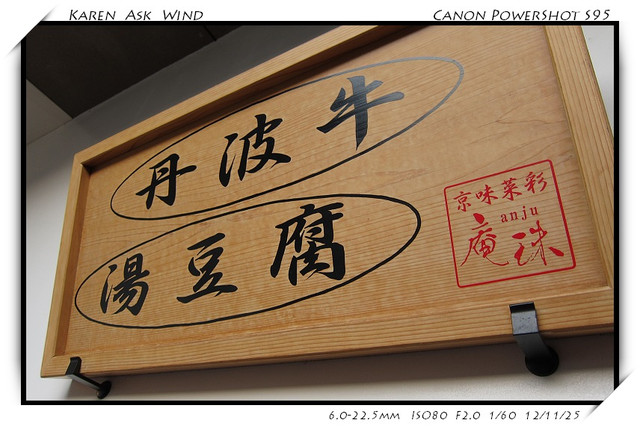 Karen Ask Wind
Canon PowerShot S95
丹波牛
湯豆腐
京味菜彩
anju
庵珠
6.0-22.5mm ISO80 F2.0 1/60 12/11/25